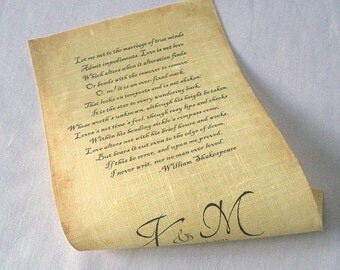 Let me not to the marriage of true minds
Admit impediments. Love is not love
Which alters when it alteration finds,
Or bends with the remover to remove:
O, no! it is an ever-fixed mark,
That looks on tempests and is not shaken;
It is the star to every wandering bark,
Whose worth's unknown, although his height be taken.
Love's not time's fool, though rosy lips and cheeks
Within his bending sickle's compass come;
Love alters not with his brief hours and weeks,
But bears it out even to the edge of doom.
If this be error, and upon me proved,
I never writ, nor no man ever loved.
-William Shakespeare
K & M